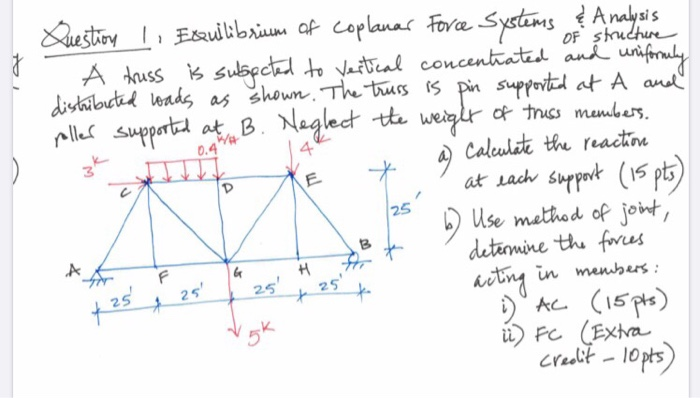 Question 1, Equilibrium of Coplanar Force Systems & Analysis
of structure
A truss is subjected to vertical concentrated and uniformly
distributed loads as shown. The truss is pin supported at A and
roller supported at B. Neglect the weight of truss members.
a) Calculate the reaction
at each support (15 pts)
b) Use method of joint,
determine the forces
acting in members:
i) AC (15 pts)
ii) FC (Extra
credit – 10 pts)
3k
0.4 k/ft
4k
C
D
E
25'
A
F
G
H
B
25'
25'
25'
25'
5k